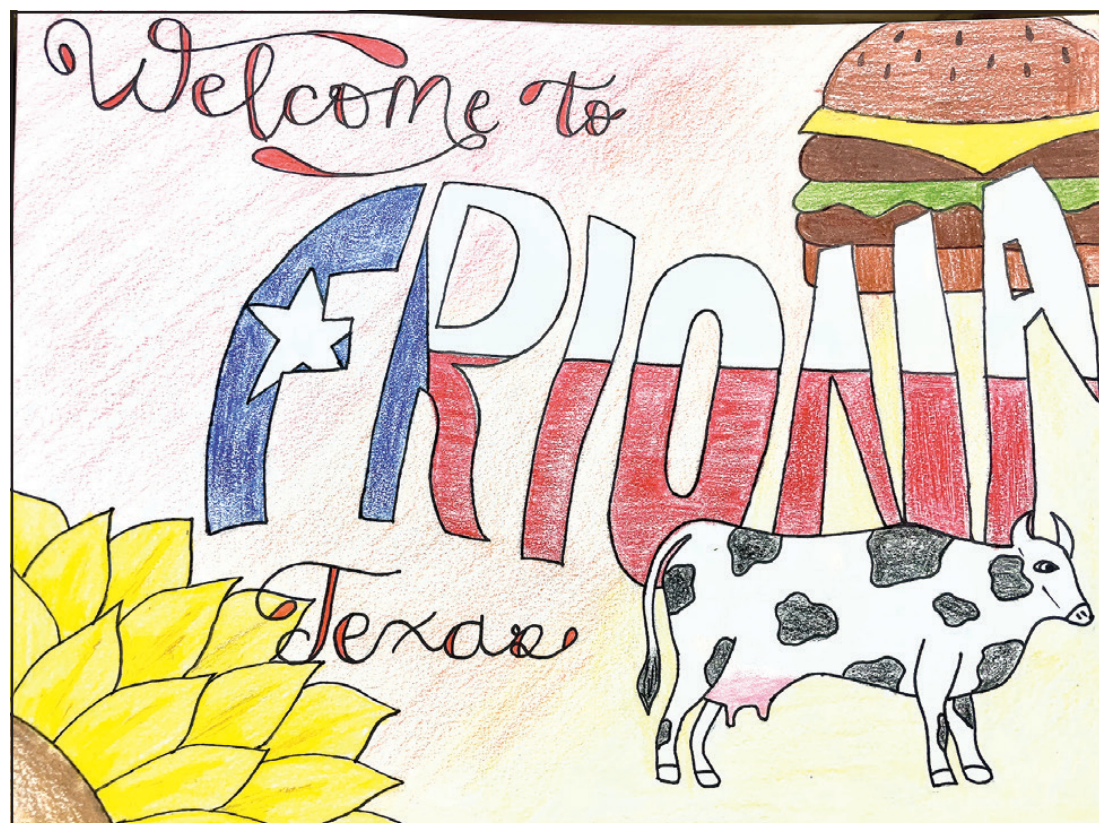 Welcome to
FRIONA
Texas